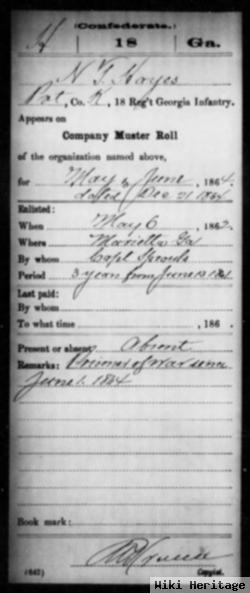 (Confederate.)
H 18 Ga.
N T Hayes
Pvt, Co. K, 18 Reg't Georgia Infantry.
Appears on
Company Muster Roll
of the organization named above,
for May & June, 1864.
dated Dec 21 1864
Enlisted:
When May 6, 1862.
Where Marietta Ga
By whom Capt
Period 3 years from June 13 1861
Last paid:
By whom
To what time , 186 .
Present or absent Absent
Remarks: Prisoner of war since
June 1. 1864
Book mark:
(642) Copyist.
Wiki Heritage